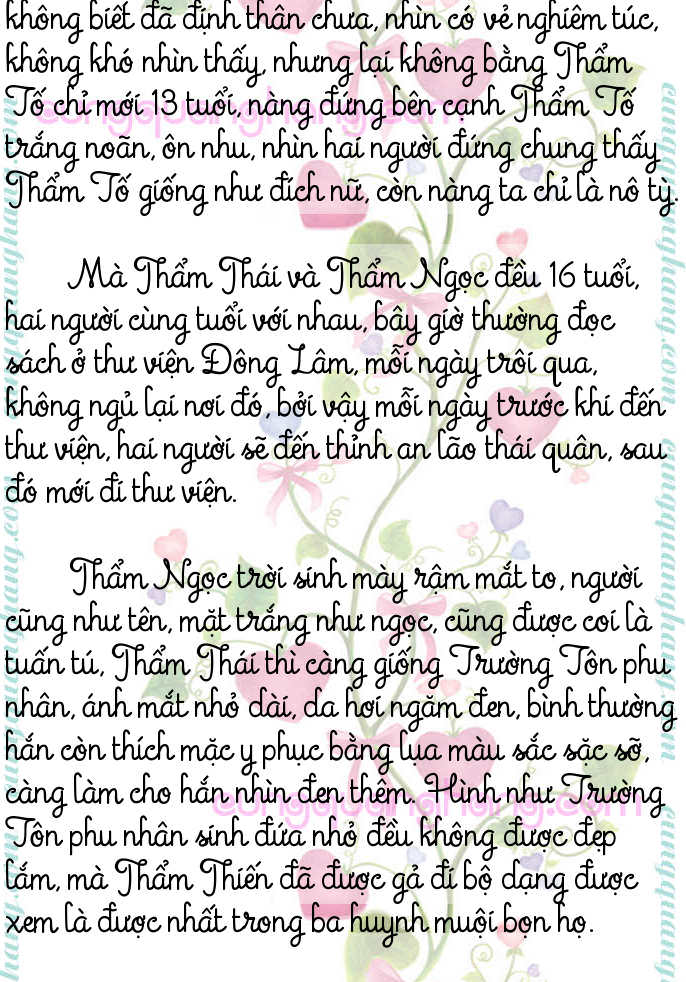 không biết đã định thân chưa, nhìn có vẻ nghiêm túc,
không khó nhìn thấy, nhưng lại không bằng Thẩm
Tố chỉ mới 13 tuổi, nàng đứng bên cạnh Thẩm Tố
trắng noãn, ôn nhu, nhìn hai người đứng chung thấy
Thẩm Tố giống như đích nữ, còn nàng ta chỉ là nô tỳ.
Mà Thẩm Thái và Thẩm Ngọc đều 16 tuổi,
hai người cùng tuổi với nhau, bây giờ thường đọc
sách ở thư viện Đông Lâm, mỗi ngày trôi qua,
không ngủ lại nơi đó, bởi vậy mỗi ngày trước khi đến
thư viện, hai người sẽ đến thỉnh an lão thái quân, sau
đó mới đi thư viện.
Thẩm Ngọc trời sinh mày rậm mắt to, người
cũng như tên, mặt trắng như ngọc, cũng được coi là
tuấn tú, Thẩm Thái thì càng giống Trường Tôn phu
nhân, ánh mắt nhỏ dài, da hơi ngăm đen, bình thường
hắn còn thích mặc y phục bằng lụa màu sắc sặc sỡ,
càng làm cho hắn nhìn đen thêm. Hình như Trường
Tôn phu nhân sinh đứa nhỏ đều không được đẹp
lắm, mà Thẩm Thiến đã được gả đi bộ dạng được
xem là được nhất trong ba huynh muội bọn họ.
cungquanghang.com
cungquanghang.com